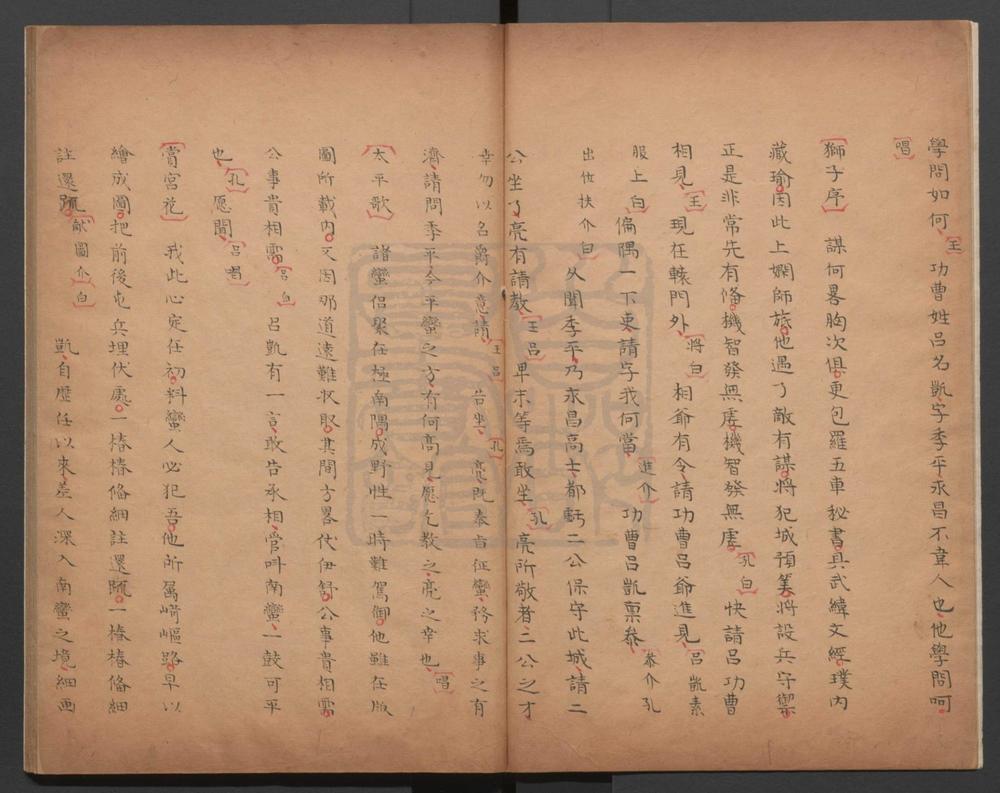 學問如何王功曹姓呂名凱字季平永昌不韋人也他學問呵
唱
獅子序 謀何畧胸次俱更包羅五車秘書具武緯文經璞內
藏瑜因此上嫻師旅他遇了敵有謀將犯城預筭將設兵守禦
正是非常先有俻機智發無虗機智發無虗孔白快請呂功曹
相見王現在轅門外將白相爺有令請功曹呂爺進見呂凱素
服上白偏隅一下吏請字我何當進介功曹呂凱稟叅叅介孔
出位扶介白久聞季平乃永昌高士都虧二公保守此城請二
公坐了亮有請教王呂卑末等焉敢坐孔亮所敬者二公之才
幸勿以名爵介意請王呂告坐孔亮既奉旨征蠻務求事之有
濟請問季平今平蠻之方有何高見愿乞教之亮之幸也唱
太平歌 諸蠻侶聚在極南隅成野性一時難駕御他雖在版
圖所載內又因那道遠難收取其間方畧代伊舒公事貴相需
公事貴相需呂白呂凱有一言敢告承相管呌南蠻一鼓可平
也孔愿聞呂唱
賞宮花 我此心定任初料蠻人必犯吾他所属﨑嶇路早以
繪成圖把前後屯兵埋伏處一樁樁俻細註還䟽一樁樁俻細
註還䟽献圖介白凱自歷任以來差人深入南蠻之境細画